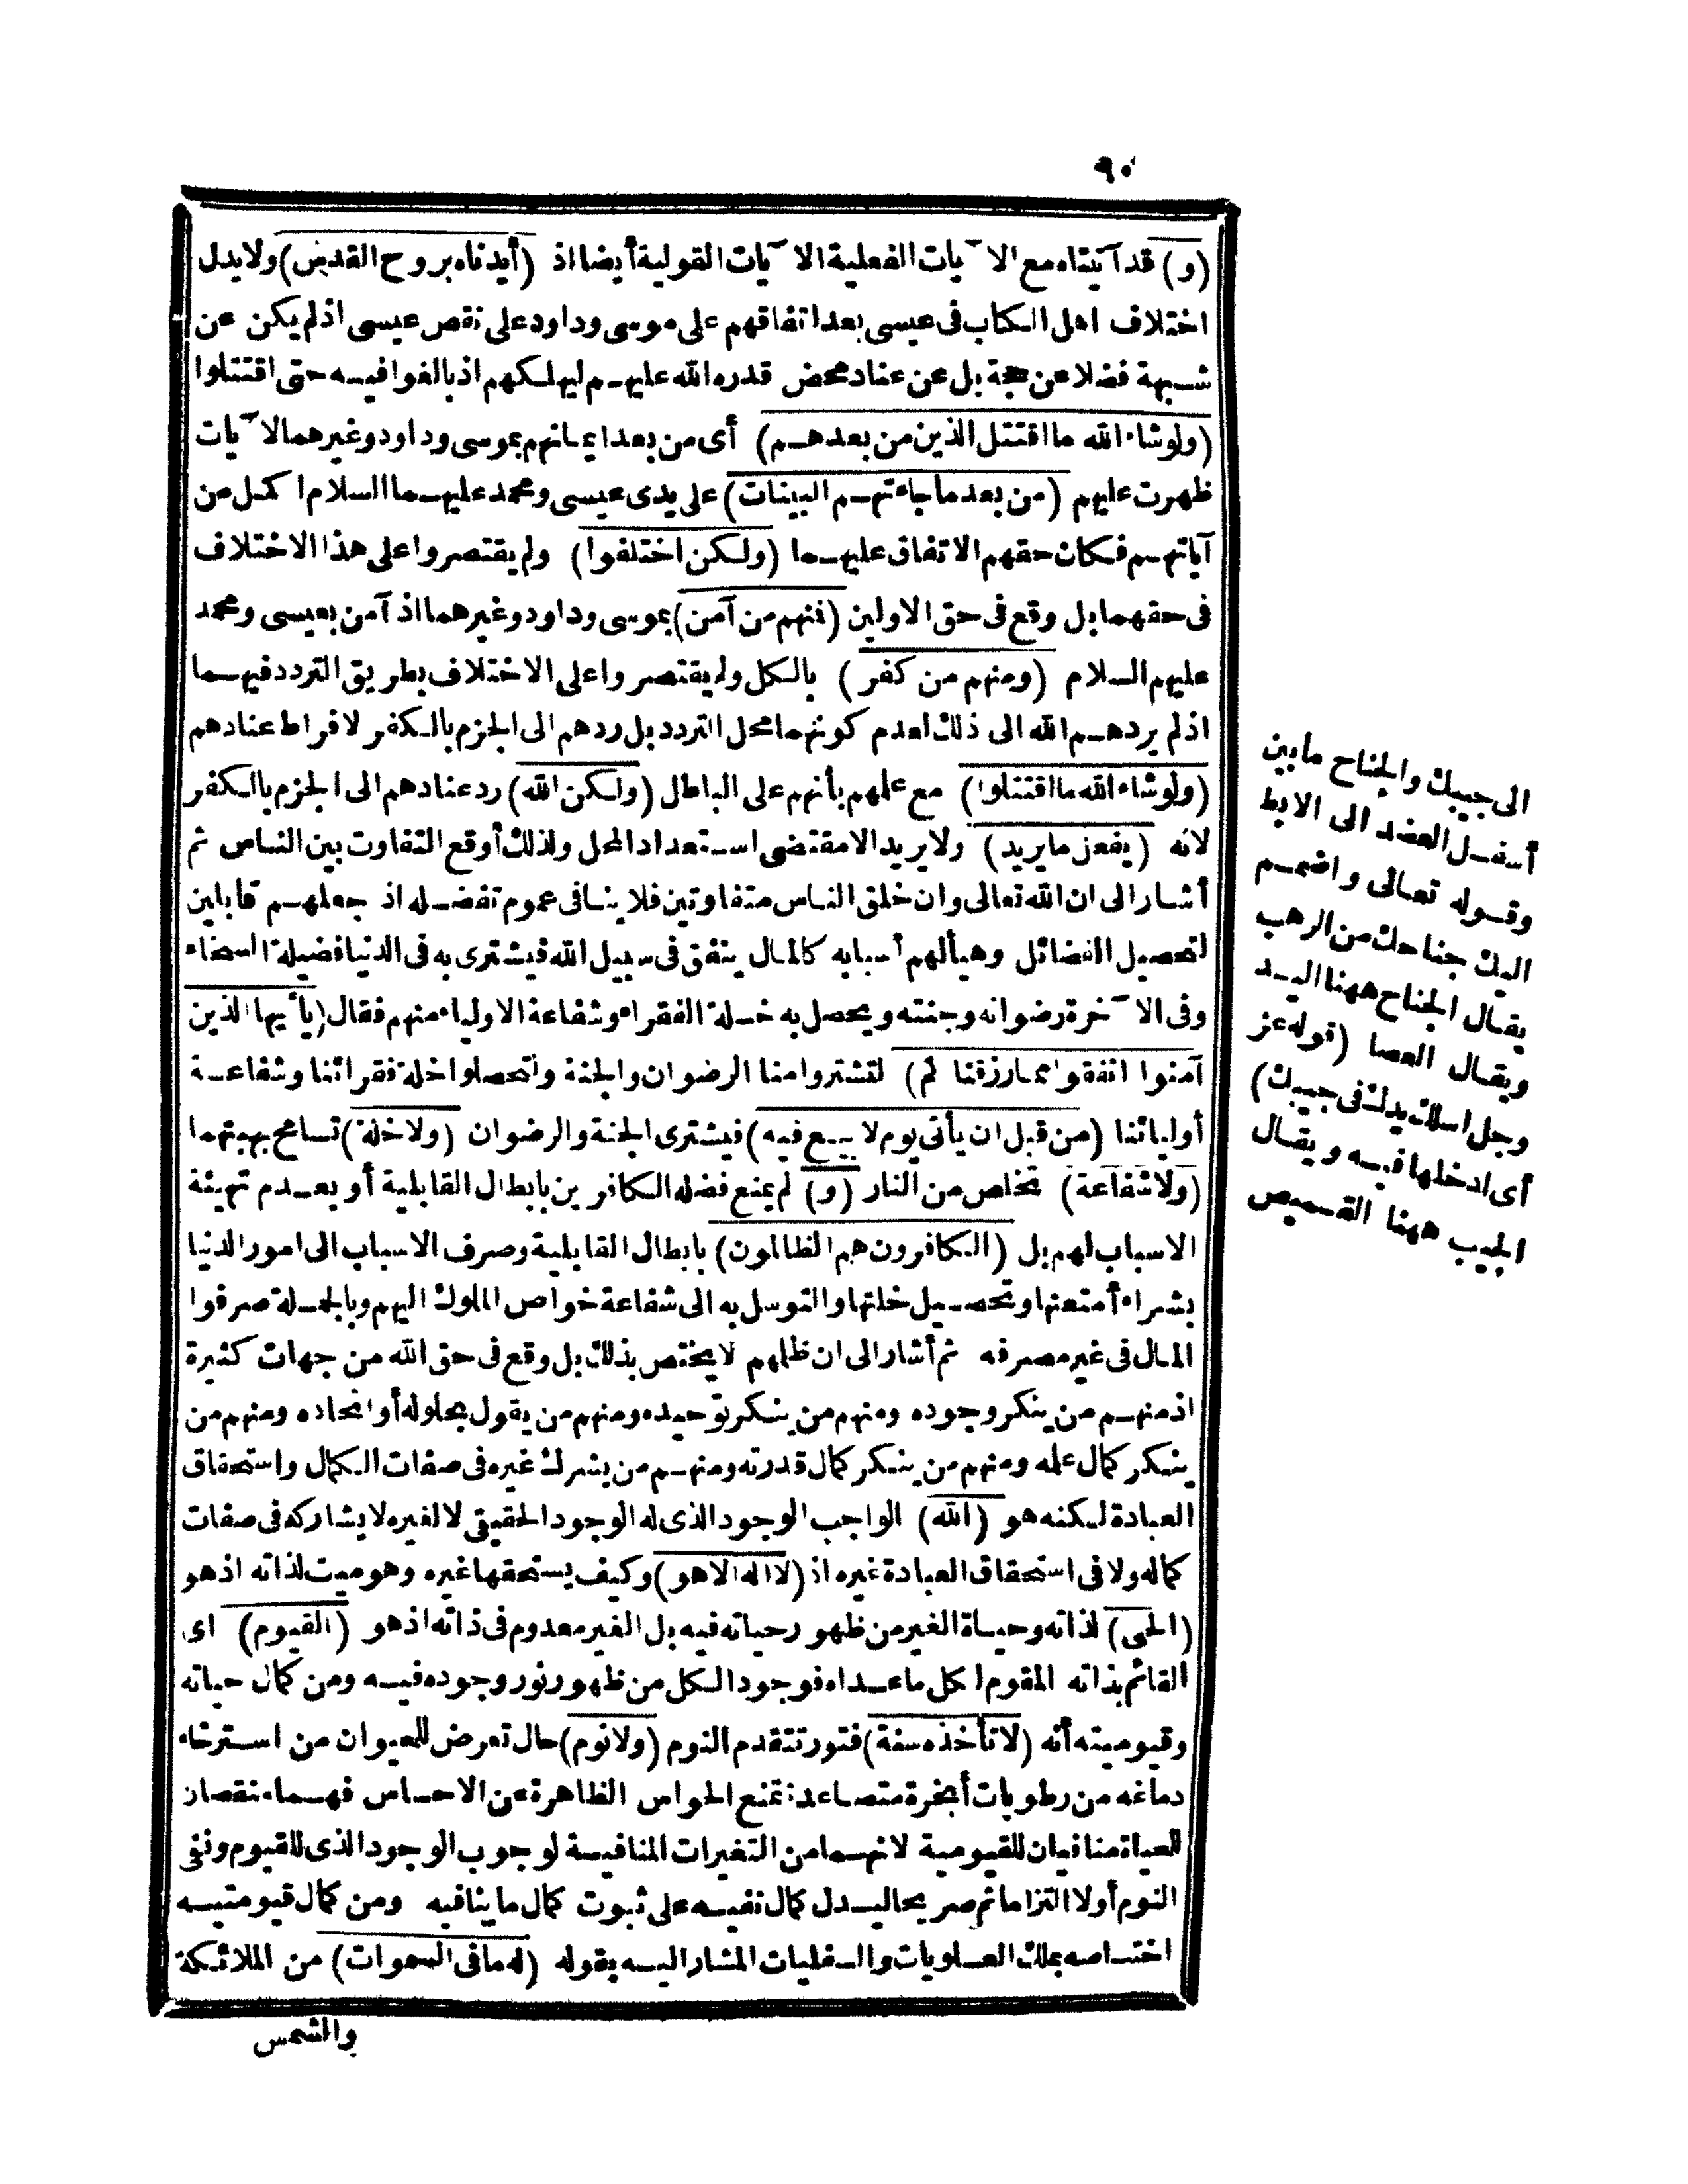 ٩٠
(و) قد آتيناه مع الآيات الفعلية الآيات القولية أيضا اذ (أيدناه بروح القدس) ولا يدل
اختلاف اهل الكتاب فى عيسى بعد اتفاقهم على موسى وداود على نقص عيسى اذ لم يكن عن
شبهة فضلا عن حجة بل عن عناد محض قدره الله عليهم ليهلكهم اذ بالغوا فيه حتى اقتتلوا
(ولو شاء الله ما اقتتل الذين من بعدهم) أى من بعد ايمانهم بموسى وداود وغيرهما الآيات
ظهرت عليهم (من بعد ما جاءتهم البينات) على يدى عيسى ومحمد عليهما السلام اكمل من
آياتهم فكان حقهم الاتفاق عليهما (ولكن اختلفوا) ولم يقتصروا على هذا الاختلاف
فى حقهما بل وقع فى حق الاولين (فمنهم من آمن) بموسى وداود وغيرهما اذ آمن بعيسى ومحمد
عليهم السلام (ومنهم من كفر) بالكل ولم يقتصروا على الاختلاف بطريق التردد فيهما
اذ لم يردهم الله الى ذلك لعدم كونهما محل التردد بل ردهم الى الجزم بالكفر لافراط عنادهم
(ولو شاء الله ما اقتتلوا) مع علمهم بأنهم على الباطل (ولكن الله) رد عنادهم الى الجزم بالكفر
لانه (يفعل ما يريد) ولا يريد الا مقتضى استعداد المحل ولذلك أوقع التفاوت بين الناس ثم
أشار الى ان الله تعالى وان خلق الناس متفاوتين فلا ينافى عموم تفضله اذ جعلهم قابلين
لتحصيل الفضائل وهيأ لهم أسبابه كالمال ينفق فى سبيل الله فيشترى به فى الدنيا فضيلة السخاء
وفى الآخرة رضوانه وجنته ويحصل به خلة الفقراء وشفاعة الاولياء منهم فقال (يا أيها الذين
آمنوا انفقوا مما رزقناكم) لتشتروا منا الرضوان والجنة ولتحصلوا خلة فقرائنا وشفاعة
أوليائنا (من قبل ان يأتى يوم لا بيع فيه) فيشترى الجنة والرضوان (ولا خلة) تسامح بهبتهما
(ولا شفاعة) تخلص من النار (و) لم يمنع فضله الكافرين بابطال القابلية أو بعدم تهيئة
الاسباب لهم بل (الكافرون هم الظالمون) بابطال القابلية وصرف الاسباب الى امور الدنيا
بشراء أمتعتها وتحصيل خلتها والتوسل به الى شفاعة خواص الملوك اليهم وبالجملة صرفوا
المال فى غير مصرفه ثم أشار الى ان ظلمهم لا يختص بذلك بل وقع فى حق الله من جهات كثيرة
اذ منهم من ينكر وجوده ومنهم من ينكر توحيده ومنهم من يقول بحلوله أو اتحاده ومنهم من
ينكر كمال علمه ومنهم من ينكر كمال قدرته ومنهم من يشرك غيره فى صفات الكمال واستحقاق
العبادة لكنه هو (الله) الواجب الوجود الذى له الوجود الحقيقى لا لغيره لا يشاركه فى صفات
كماله ولا فى استحقاق العبادة غيره اذ (لا اله الا هو) وكيف يستحقها غيره وهو ميت لذاته اذ هو
(الحى) لذاته وحياة الغير من ظهور حياته فيه بل الغير معدوم فى ذاته اذ هو (القيوم) اى
القائم بذاته المقوم لكل ما عداه فوجود الكل من ظهور نور وجوده فيه ومن كمال حياته
وقيوميته أنه (لا تأخذه سنة) فتور تتقدم النوم (ولا نوم) حال تعرض للحيوان من استرخاء
دماغه من رطوبات أبخرة متصاعدة تمنع الحواس الظاهرة عن الاحساس فهما منقصان
للحياة منافيان للقيومية لانهما من التغيرات المنافية لوجوب الوجود الذى للقيوم ونفى
النوم أولا التزاما ثم صريحا ليدل كمال نفيه على ثبوت كمال ما ينافيه ومن كمال قيومتيه
اختصاصه بملك العلويات والسفليات المشار اليه بقوله (له ما فى السموات) من الملائكة
والشمس
الى جيبك والجناح ما بين
أسفل العضد الى الابط
وقوله تعالى واضمم
اليك جناحك من الرهب
يقال الجناح ههنا اليد
ويقال العصا (قوله عز
وجل اسلك يدك فى جيبك)
أى ادخلها فيه ويقال
الجيب ههنا القميص